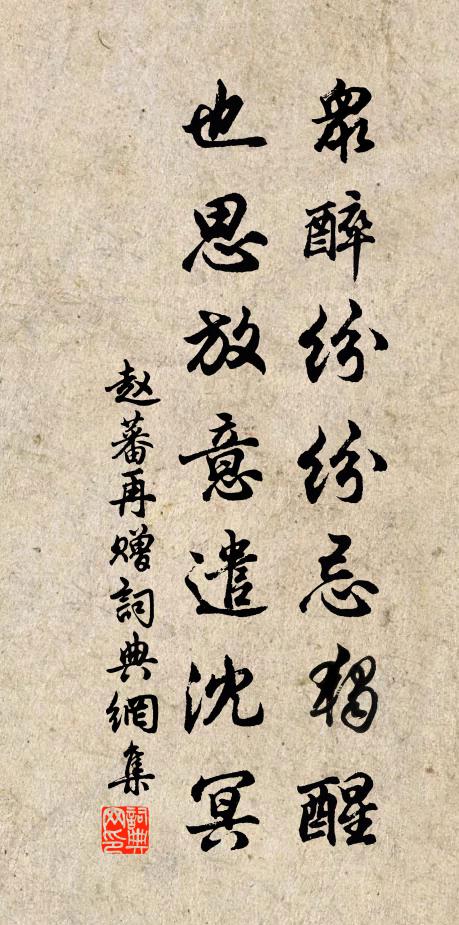 眾醉紛紛忌獨醒
也思放意遣沈冥
赵蕃再赠詞典網集
詞典網印